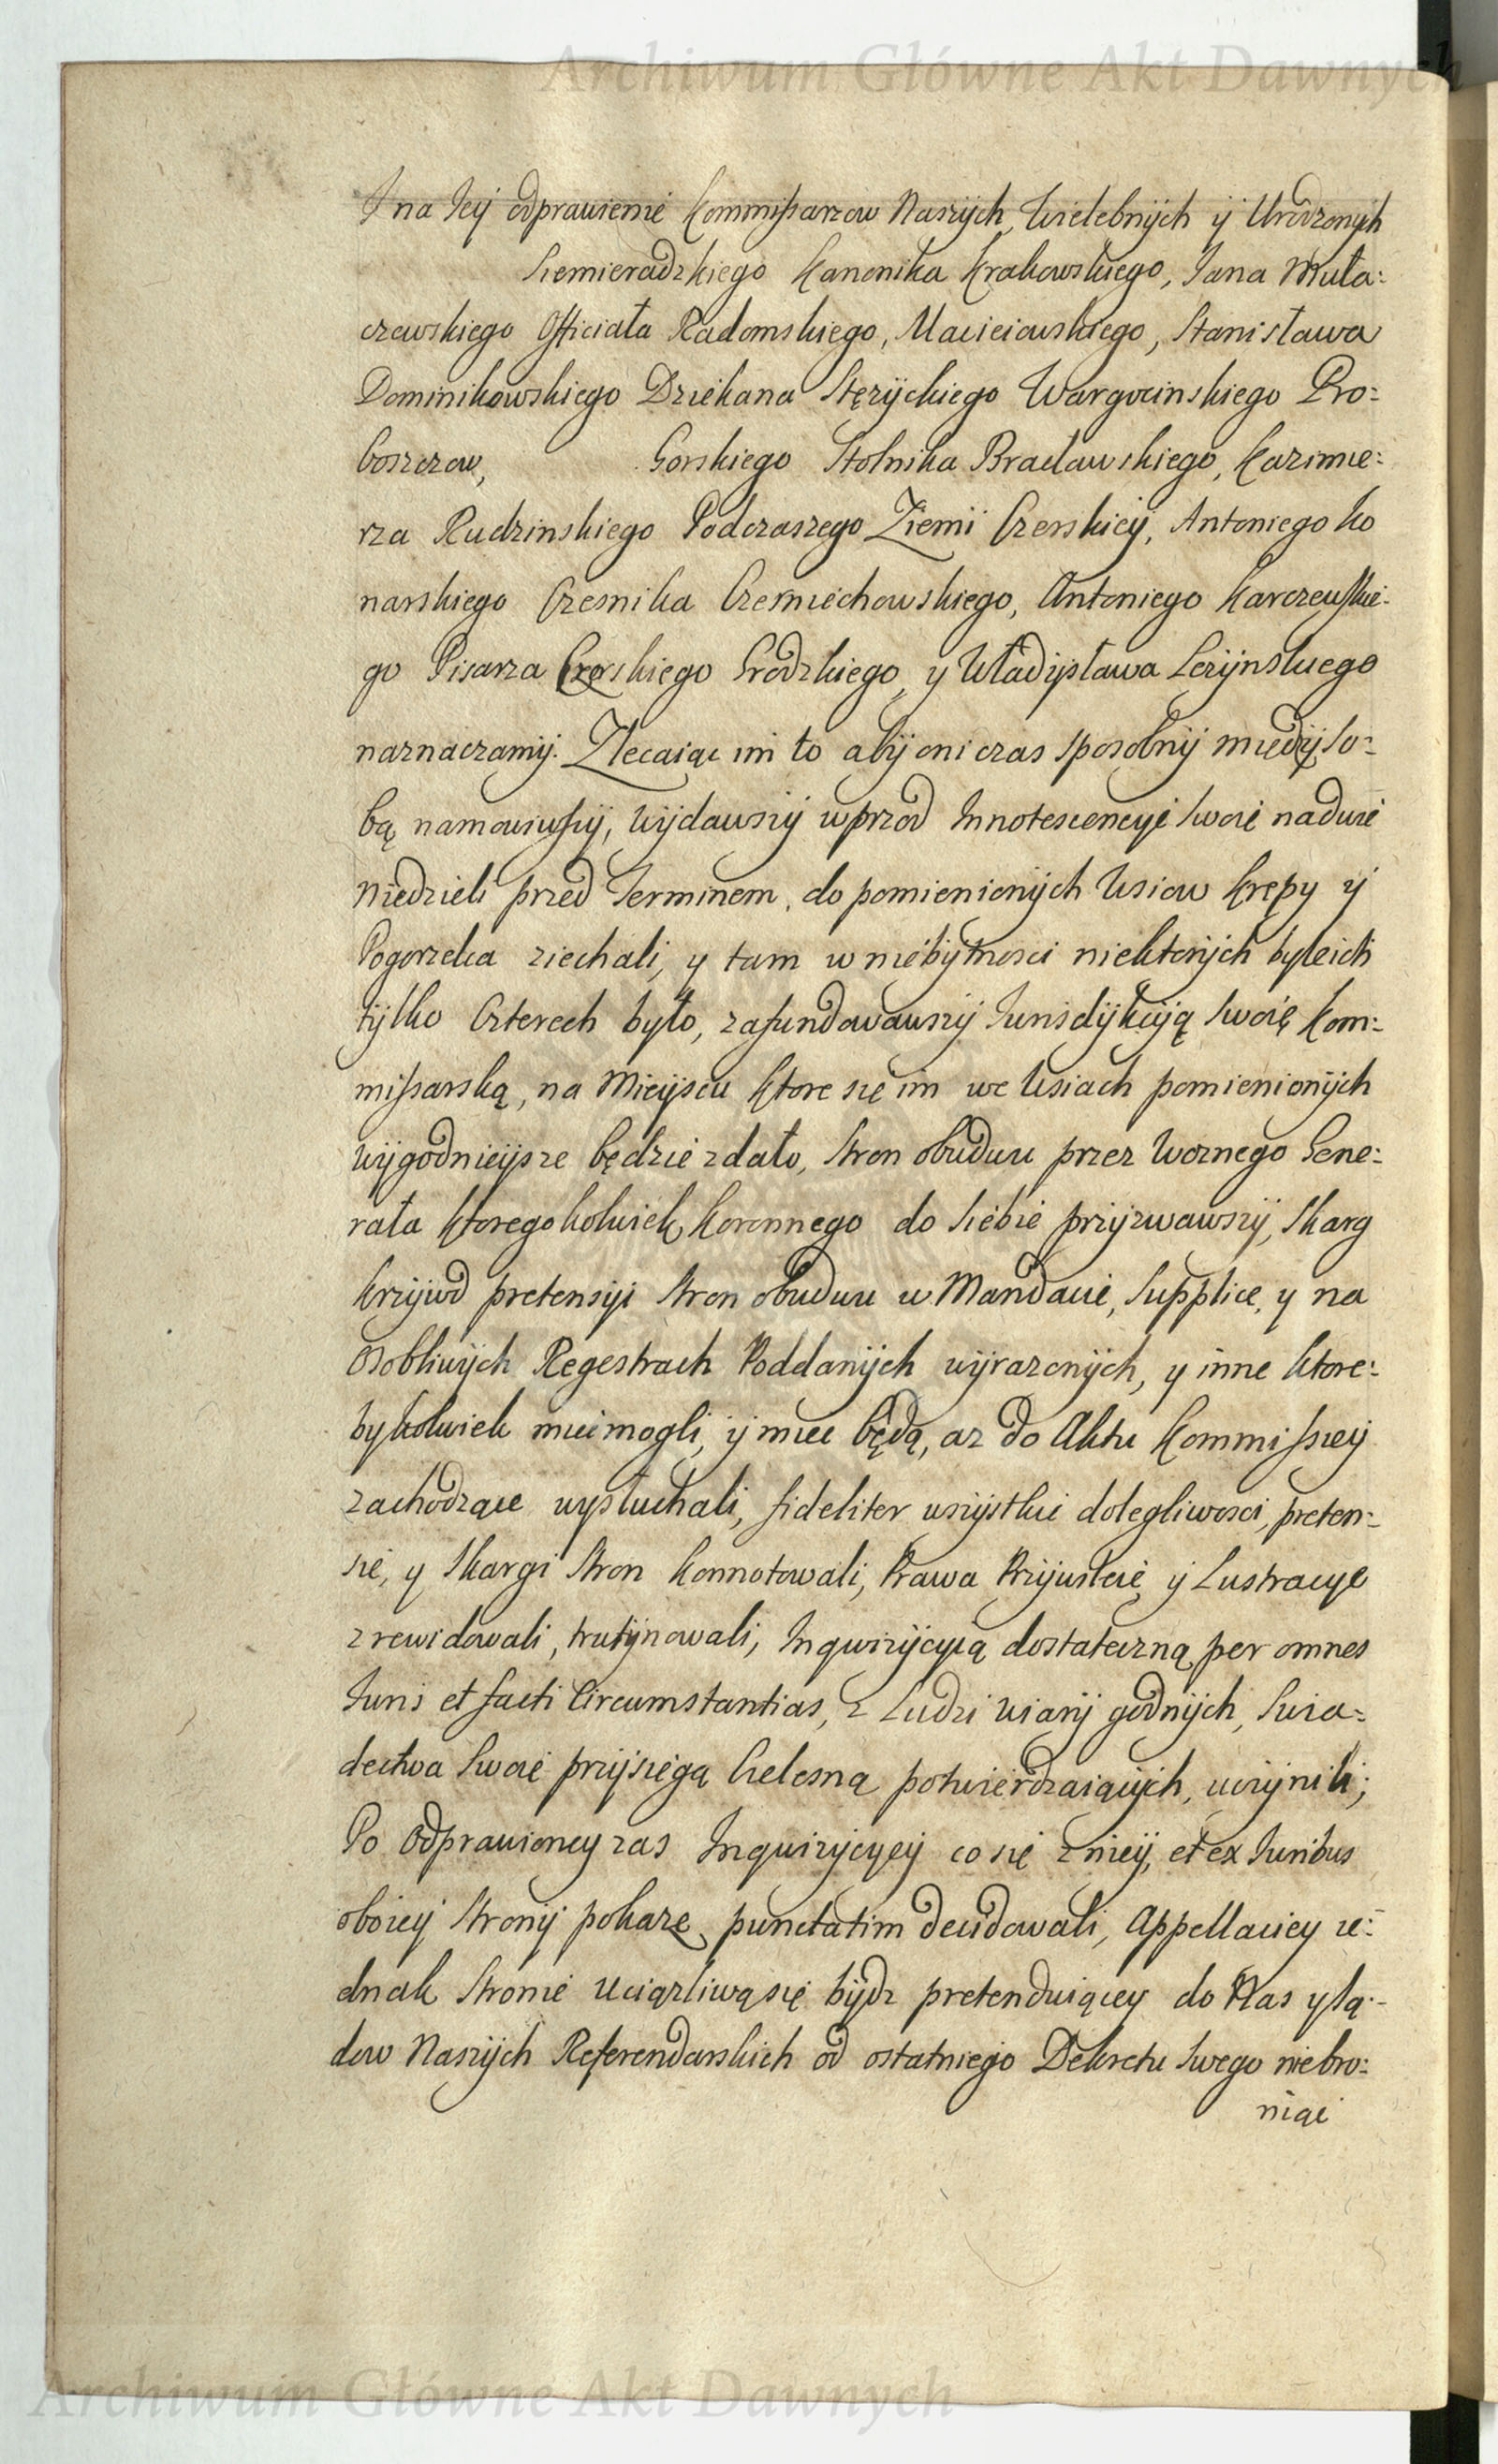 Archiwum Główne Akt Dawnych
I na Jey odprawienie Kommissarzow Naszych, Wielebnych y Urodzonych
Siemieradzkiego Kanonika Krakowskiego, Jana Muła:
czewskiego Officiała Radomskiego, Macieiowskiego, Stanisława
Dominikowskiego Dziekana Stężyckiego Wargocinskiego Pro:
boszczow, Gorskiego Stolnika Bracławskiego, Kazimie:
rza Rudzinskiego Podczaszego Ziemi Czerskiey, Antoniego Ko
narskiego Czesnika Czerniechowskiego, Antoniego Karczewskie:
go Pisarza Czerskiego Grodzkiego, y Władysława Leżynskiego
naznaczamy. Zlecaiąc im to aby oni czas sposobny między so:
bą namowiwszy, wydawszy wprzod Innotescencye swoie na dwie
Niedzieli przed Terminem, do pomienionych Wsiow Krępy y
Pogorzelca ziechali, y tam w niebytnosci niektorych byle ich
tylko Czterech było, zafundowawszy Jurisdykcyą swoię Kom:
missarską, na Mieyscu ktore się im we Wsiach pomienionych
wygodnieysze będzie zdało, Stron obudwu przez Woznego Gene:
rała ktoregokolwiek Koronnego do siebie przyzwawszy, Skarg
krzywd pretensyi Stron obudwu w Mandacie, Supplice, y na
osobliwych Regestrach Poddanych wyrazonych, y inne ktore:
bykolwiek miec mogli, y miec będą, az do Aktu Kommissiey
zachodzące wysłuchali, fideliter wszystkie dolegliwosci, preten:
sie, y Skargi Stron konnotowali, Prawa Przywileie y Lustracye
zrewidowali, trutynowali, Inqwizycyią dostateczną per omnes
Juris et facti Circumstantias, z Ludzi wiary godnych, Swia:
dectwa swoie przysięgą Cielesną potwierdzaiących, uczynili;
Po odprawioney zas Inquizycyey co się z niey, et ex Juribus
oboiey Strony pokaze punctatim decidowali, Appellaciey ie:
dnak Stronie uciązliwą się bydz pretenduiącey do Nas y Są:
dow Naszych Referendarskich od ostatniego Dekretu swego niebro:
niąc
Archiwum Główne Akt Dawnych